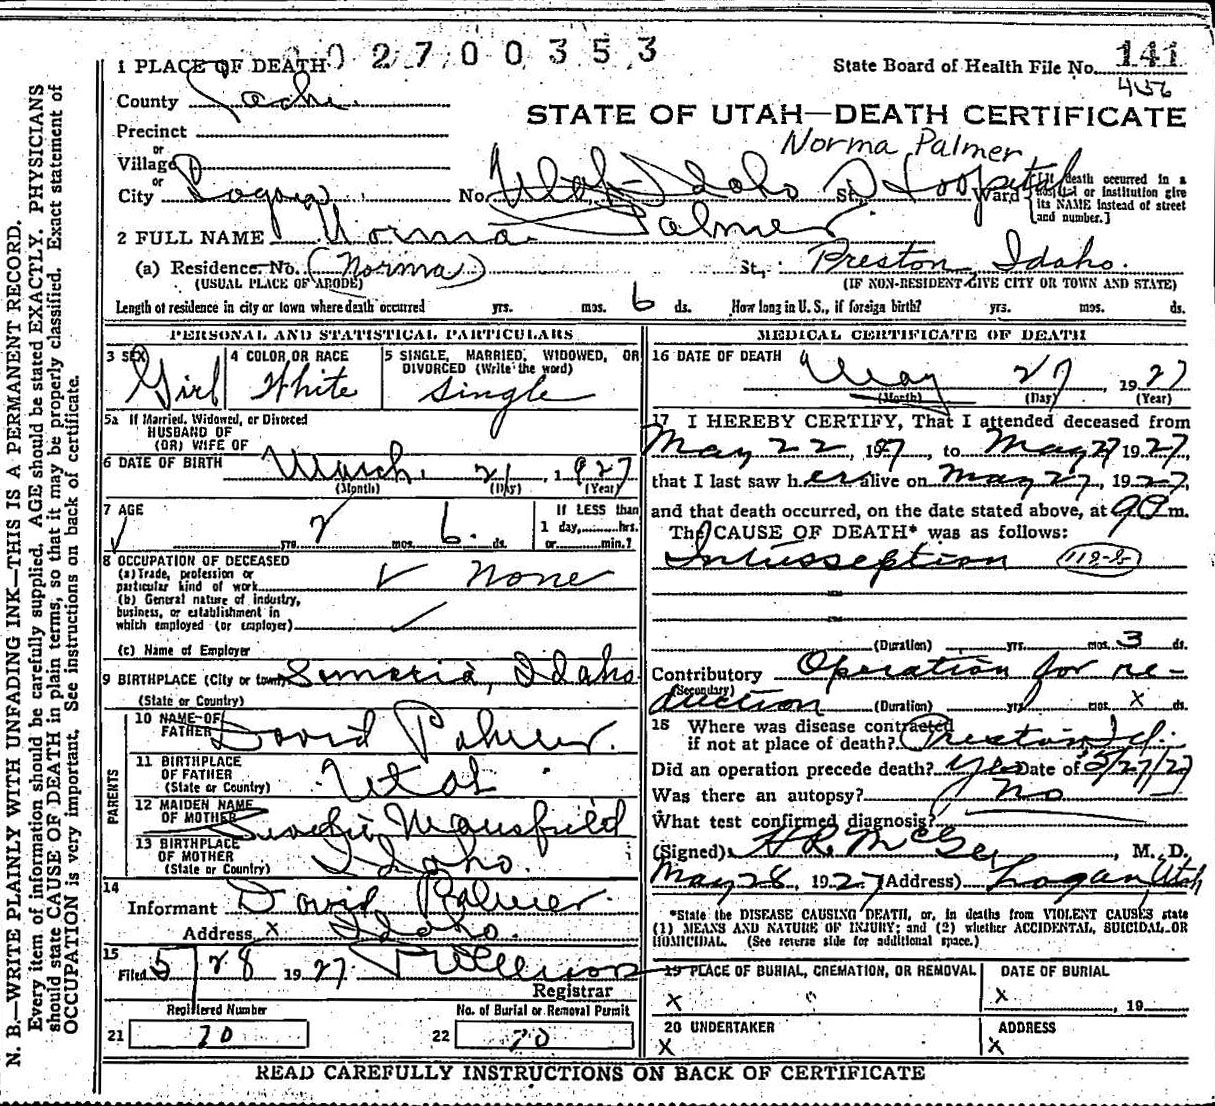 02700353
1 PLACE OF DEATH
State Board of Health File No. 141
456
County Cache
STATE OF UTAH—DEATH CERTIFICATE
Precinct
Norma Palmer
or
Village
or
City Logan No. Utah-Idaho Hospital St., Ward [If death occurred in a hospital or institution give its NAME instead of street and number.]
2 FULL NAME Norma Palmer
(a) Residence. No. (Norma) St., Preston, Idaho.
(USUAL PLACE OF ABODE) (IF NON-RESIDENT GIVE CITY OR TOWN AND STATE)
Length of residence in city or town where death occurred yrs. mos. 6 ds. How long in U. S., if foreign birth? yrs. mos. ds.
PERSONAL AND STATISTICAL PARTICULARS
3 SEX Girl
4 COLOR OR RACE White
5 SINGLE, MARRIED, WIDOWED, OR DIVORCED (Write the word) Single
5a If Married, Widowed, or Divorced
HUSBAND OF
(OR) WIFE OF
6 DATE OF BIRTH March 21, 1927
(Month) (Day) (Year)
7 AGE yrs. 2 mos. 6 ds.
If LESS than
1 day,........hrs.
or............min.?
8 OCCUPATION OF DECEASED
(a) Trade, profession or
particular kind of work None
(b) General nature of industry,
business, or establishment in
which employed (or employer)
(c) Name of Employer
9 BIRTHPLACE (City or town) Samaria, Idaho
(State or Country)
PARENTS
10 NAME OF FATHER David Palmer.
11 BIRTHPLACE OF FATHER Utah
(State or Country)
12 MAIDEN NAME OF MOTHER Mansfield
13 BIRTHPLACE OF MOTHER Idaho.
(State or Country)
14
Informant David Palmer.
Address X Idaho.
15
Filed 5/28 1927
Registrar
Registered Number
21 70
No. of Burial or Removal Permit
22 70
MEDICAL CERTIFICATE OF DEATH
16 DATE OF DEATH May 27, 1927
(Month) (Day) (Year)
17 I HEREBY CERTIFY, That I attended deceased from
May 22, 1927, to May 27 1927,
that I last saw her alive on May 27, 1927,
and that death occurred, on the date stated above, at 9 P m.
The CAUSE OF DEATH* was as follows:
Intusseption
(Duration) yrs. mos. 3 ds.
Contributory Operation for re-
(Secondary)
duction (Duration) yrs. mos. X ds.
18 Where was disease contracted
if not at place of death? Preston Id.
Did an operation precede death? Yes Date of 5/27/27
Was there an autopsy? No
What test confirmed diagnosis?
(Signed) McGee, M. D.
May 28, 1927 (Address) Logan, Utah
*State the DISEASE CAUSING DEATH, or, in deaths from VIOLENT CAUSES state
(1) MEANS AND NATURE OF INJURY; and (2) whether ACCIDENTAL, SUICIDAL OR
HOMICIDAL. (See reverse side for additional space.)
19 PLACE OF BURIAL, CREMATION, OR REMOVAL
X
DATE OF BURIAL
X , 19
20 UNDERTAKER
X
ADDRESS
X
READ CAREFULLY INSTRUCTIONS ON BACK OF CERTIFICATE
N. B.—WRITE PLAINLY WITH UNFADING INK—THIS IS A PERMANENT RECORD.
Every item of information should be carefully supplied. AGE should be stated EXACTLY. PHYSICIANS
should state CAUSE OF DEATH in plain terms, so that it may be properly classified. Exact statement of
OCCUPATION is very important. See instructions on back of certificate.